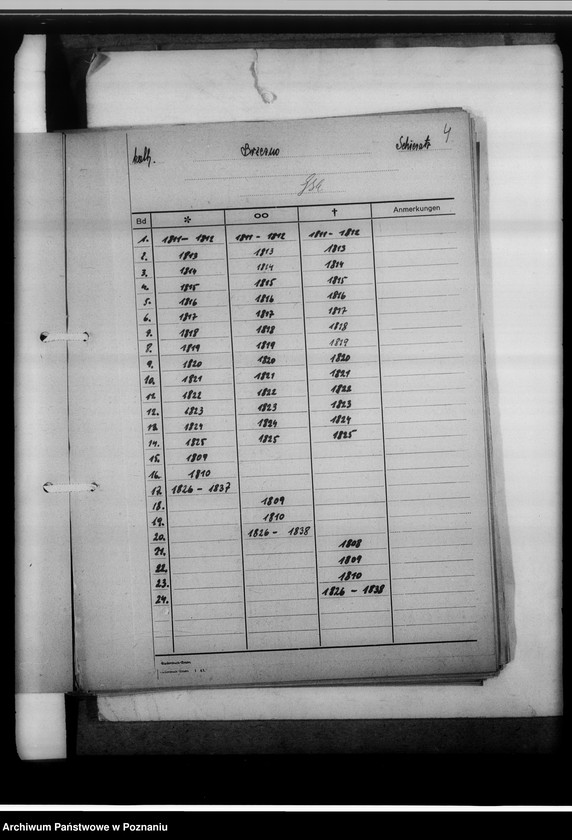 kath. Brzezno Schieratz 4
Bd * oo † Anmerkungen
1. 1811 - 1812 1811 - 1812 1811 - 1812
2. 1813 1813 1813
3. 1814 1814 1814
4. 1815 1815 1815
5. 1816 1816 1816
6. 1817 1817 1817
7. 1818 1818 1818
8. 1819 1819 1819
9. 1820 1820 1820
10. 1821 1821 1821
11. 1822 1822 1822
12. 1823 1823 1823
13. 1824 1824 1824
14. 1825 1825 1825
15. 1809
16. 1810
17. 1826 - 1837
18. 1809
19. 1810
20. 1826 - 1838
21. 1808
22. 1809
23. 1810
24. 1826 - 1838
Archiwum Państwowe w Poznaniu